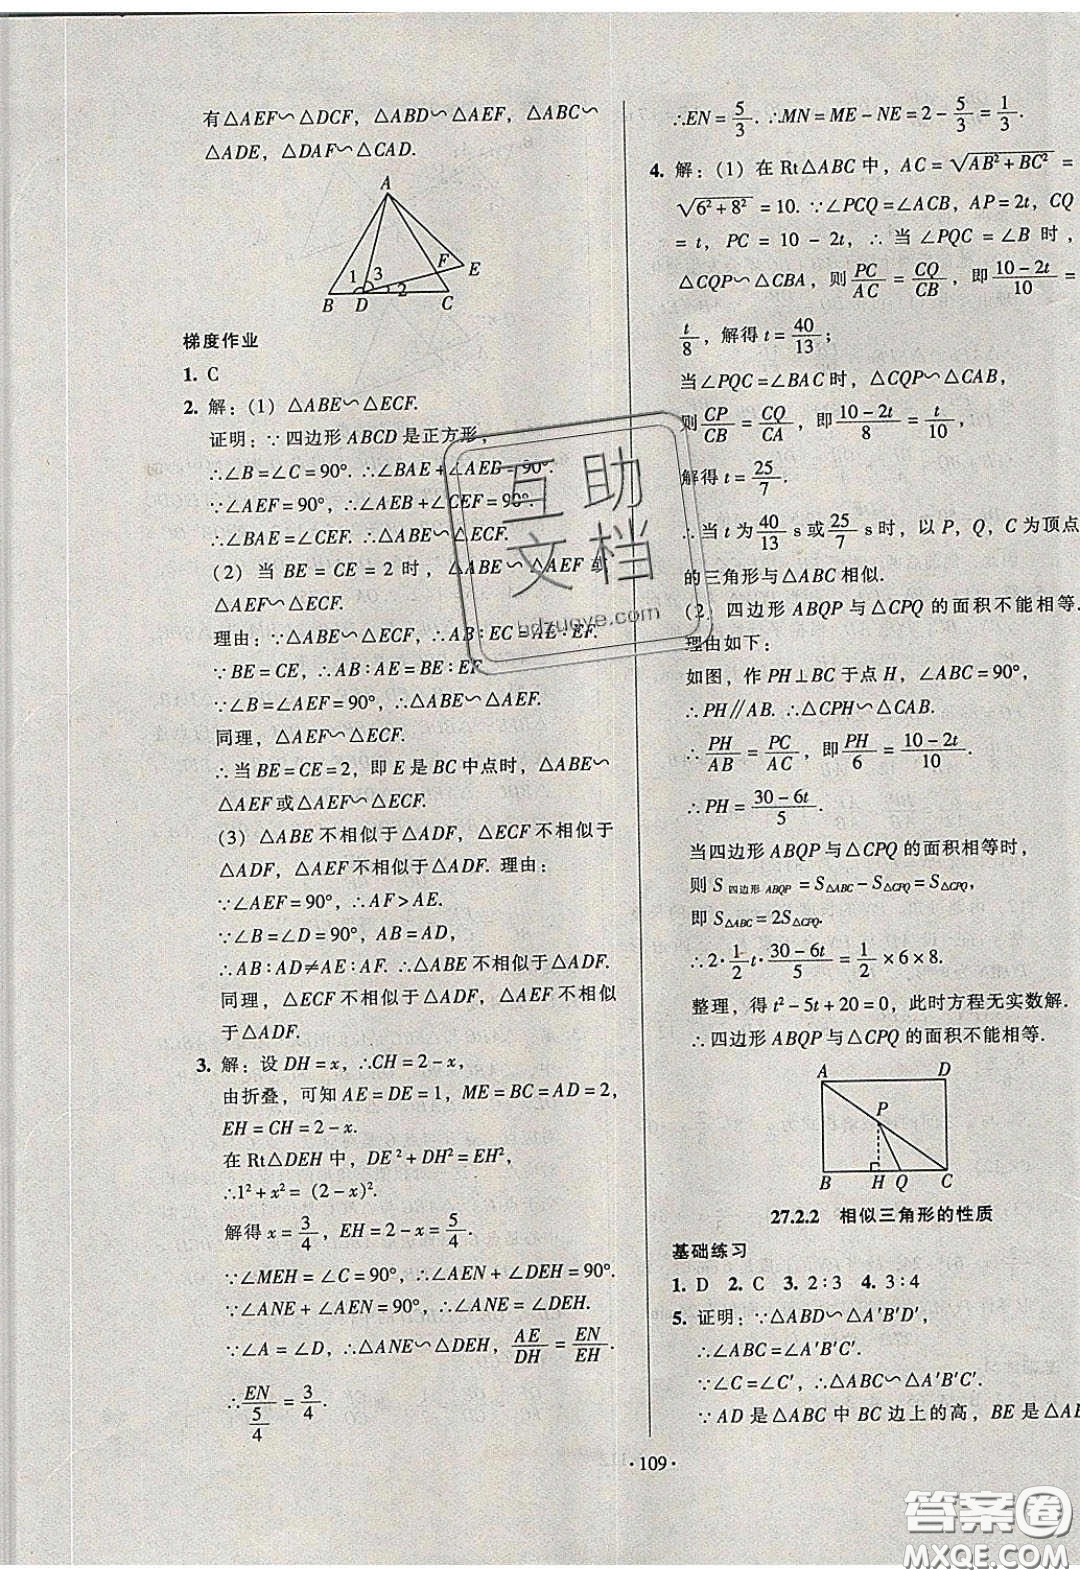 有△AEF∽△DCF，△ABD∽△AEF，△ABC∽
△ADE，△DAF∽△CAD.
A
F
E
1 3
2
B D C
梯度作业
1. C
2. 解：(1) △ABE∽△ECF.
证明：∵四边形 ABCD 是正方形，
∴∠B=∠C=90°. ∴∠BAE+∠AEB=90°.
∵∠AEF=90°，∴∠AEB+∠CEF=90°.
∴∠BAE=∠CEF. ∴△ABE∽△ECF.
(2) 当 BE=CE=2 时，△ABE∽△AEF 或
△AEF∽△ECF.
理由：∵△ABE∽△ECF，∴AB∶EC=AE∶EF.
∵BE=CE，∴AB∶AE=BE∶EF.
∵∠B=∠AEF=90°，∴△ABE∽△AEF.
同理，△AEF∽△ECF.
∴当 BE=CE=2，即 E 是 BC 中点时，△ABE∽
△AEF 或△AEF∽△ECF.
(3) △ABE 不相似于△ADF，△ECF 不相似于
△ADF，△AEF 不相似于△ADF. 理由：
∵∠AEF=90°，∴AF>AE.
∵∠B=∠D=90°，AB=AD，
∴AB∶AD≠AE∶AF. ∴△ABE 不相似于△ADF.
同理，△ECF 不相似于△ADF，△AEF 不相似
于△ADF.
3. 解：设 DH=x，∴CH=2-x，
由折叠，可知 AE=DE=1，ME=BC=AD=2，
EH=CH=2-x.
在 Rt△DEH 中，DE²+DH²=EH²，
∴1²+x²=(2-x)².
解得 x=3/4，EH=2-x=5/4.
∵∠MEH=∠C=90°，∴∠AEN+∠DEH=90°.
∵∠ANE+∠AEN=90°，∴∠ANE=∠DEH.
∵∠A=∠D，∴△ANE∽△DEH，AE/DH=EN/EH.
∴EN/(5/4)=3/4.
∴EN=5/3. ∴MN=ME-NE=2-5/3=1/3.
4. 解：(1) 在 Rt△ABC 中，AC=√(AB²+BC²)=
√(6²+8²)=10. ∵∠PCQ=∠ACB，AP=2t，CQ
=t，PC=10-2t，∴当∠PQC=∠B 时，
△CQP∽△CBA，则 PC/AC=CQ/CB，即 (10-2t)/10=
t/8，解得 t=40/13；
当∠PQC=∠BAC 时，△CQP∽△CAB，
则 CP/CB=CQ/CA，即 (10-2t)/8=t/10，
解得 t=25/7.
∴当 t 为 40/13 s 或 25/7 s 时，以 P，Q，C 为顶点
的三角形与△ABC 相似.
(2) 四边形 ABQP 与△CPQ 的面积不能相等.
理由如下：
如图，作 PH⊥BC 于点 H，∠ABC=90°，
∴PH∥AB. ∴△CPH∽△CAB.
∴PH/AB=PC/AC，即 PH/6=(10-2t)/10.
∴PH=(30-6t)/5.
当四边形 ABQP 与△CPQ 的面积相等时，
则 S四边形ABQP=S△ABC-S△CPQ=S△CPQ，
即 S△ABC=2S△CPQ.
∴2·1/2 t·(30-6t)/5=1/2×6×8.
整理，得 t²-5t+20=0，此时方程无实数解.
∴四边形 ABQP 与△CPQ 的面积不能相等.
A D
P
B H Q C
27.2.2 相似三角形的性质
基础练习
1. D 2. C 3. 2∶3 4. 3∶4
5. 证明：∵△ABD∽△A′B′D′，
∴∠ABC=∠A′B′C′.
∵∠C=∠C′，∴△ABC∽△A′B′C′.
∵AD 是△ABC 中 BC 边上的高，BE 是△AB
·109·
互助
文档
hdzuoye.com
答案圈
MXQE.COM